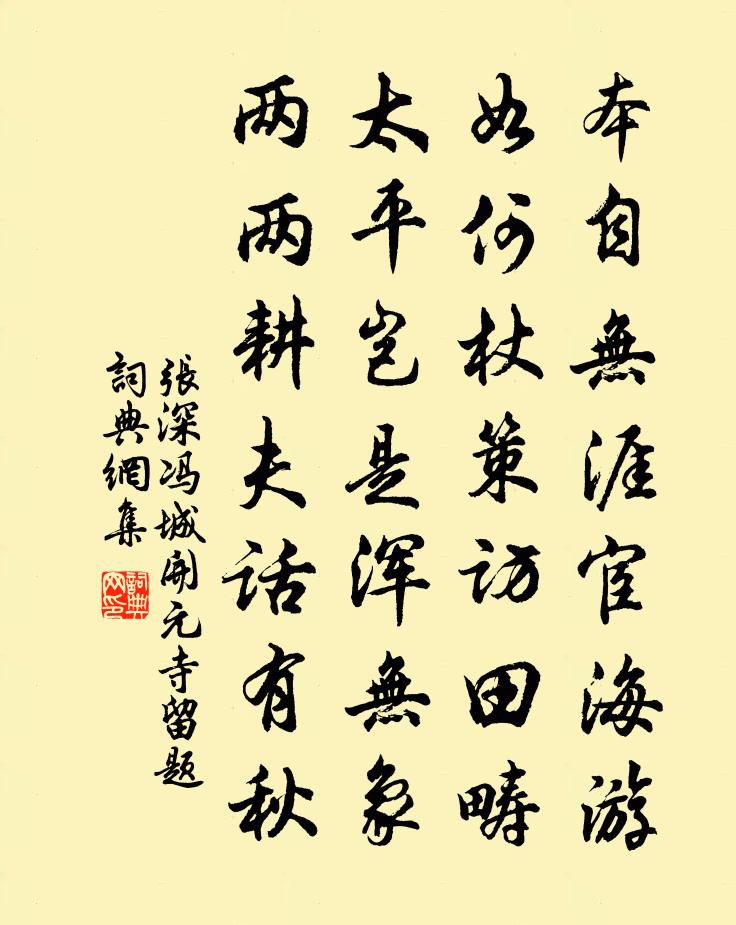 本自無涯宦海游
如何杖策访田畴
太平岂是浑無象
两两耕夫话有秋
張深冯城開元寺留题
詞典網集
詞典网印